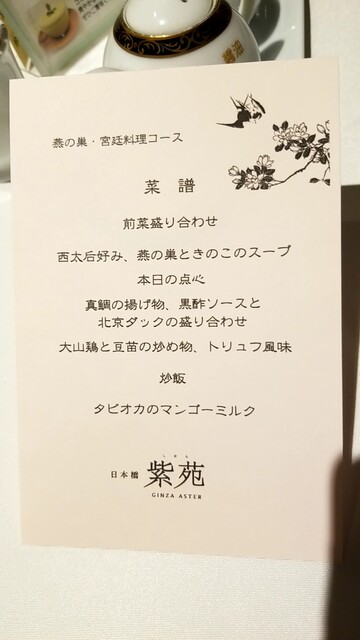 燕の巣・宮廷料理コース
菜譜
前菜盛り合わせ
西太后好み、燕の巣ときのこのスープ
本日の点心
真鯛の揚げ物、黒酢ソースと
北京ダックの盛り合わせ
大山鶏と豆苗の炒め物、トリュフ風味
炒飯
タピオカのマンゴーミルク
しおん
日本橋 紫苑
GINZA ASTER